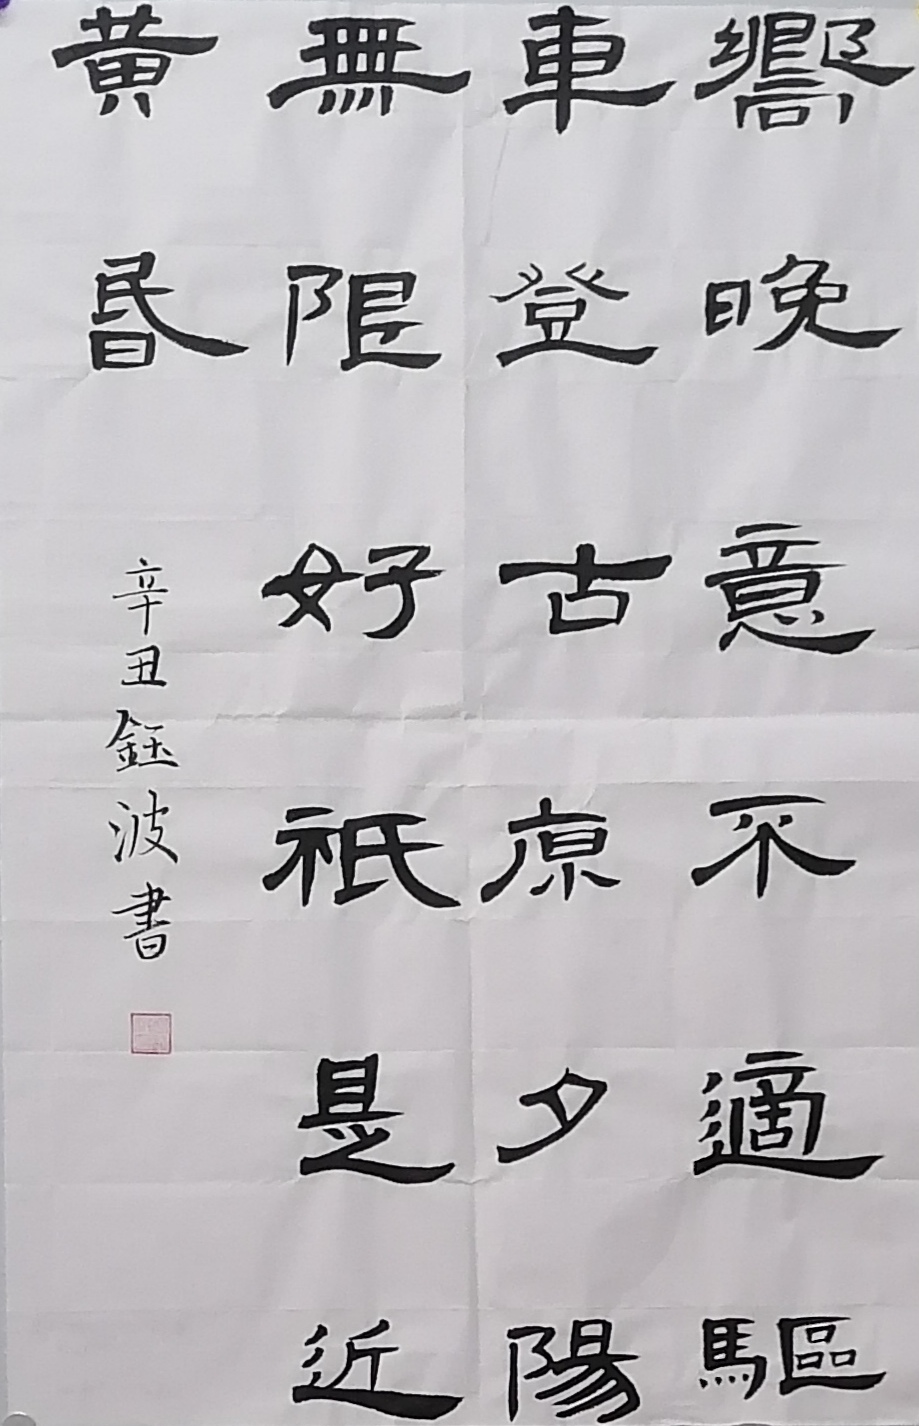 嚮晚意不適驅
車登古原夕陽
無限好祇是近
黃昏
辛丑鈺波書